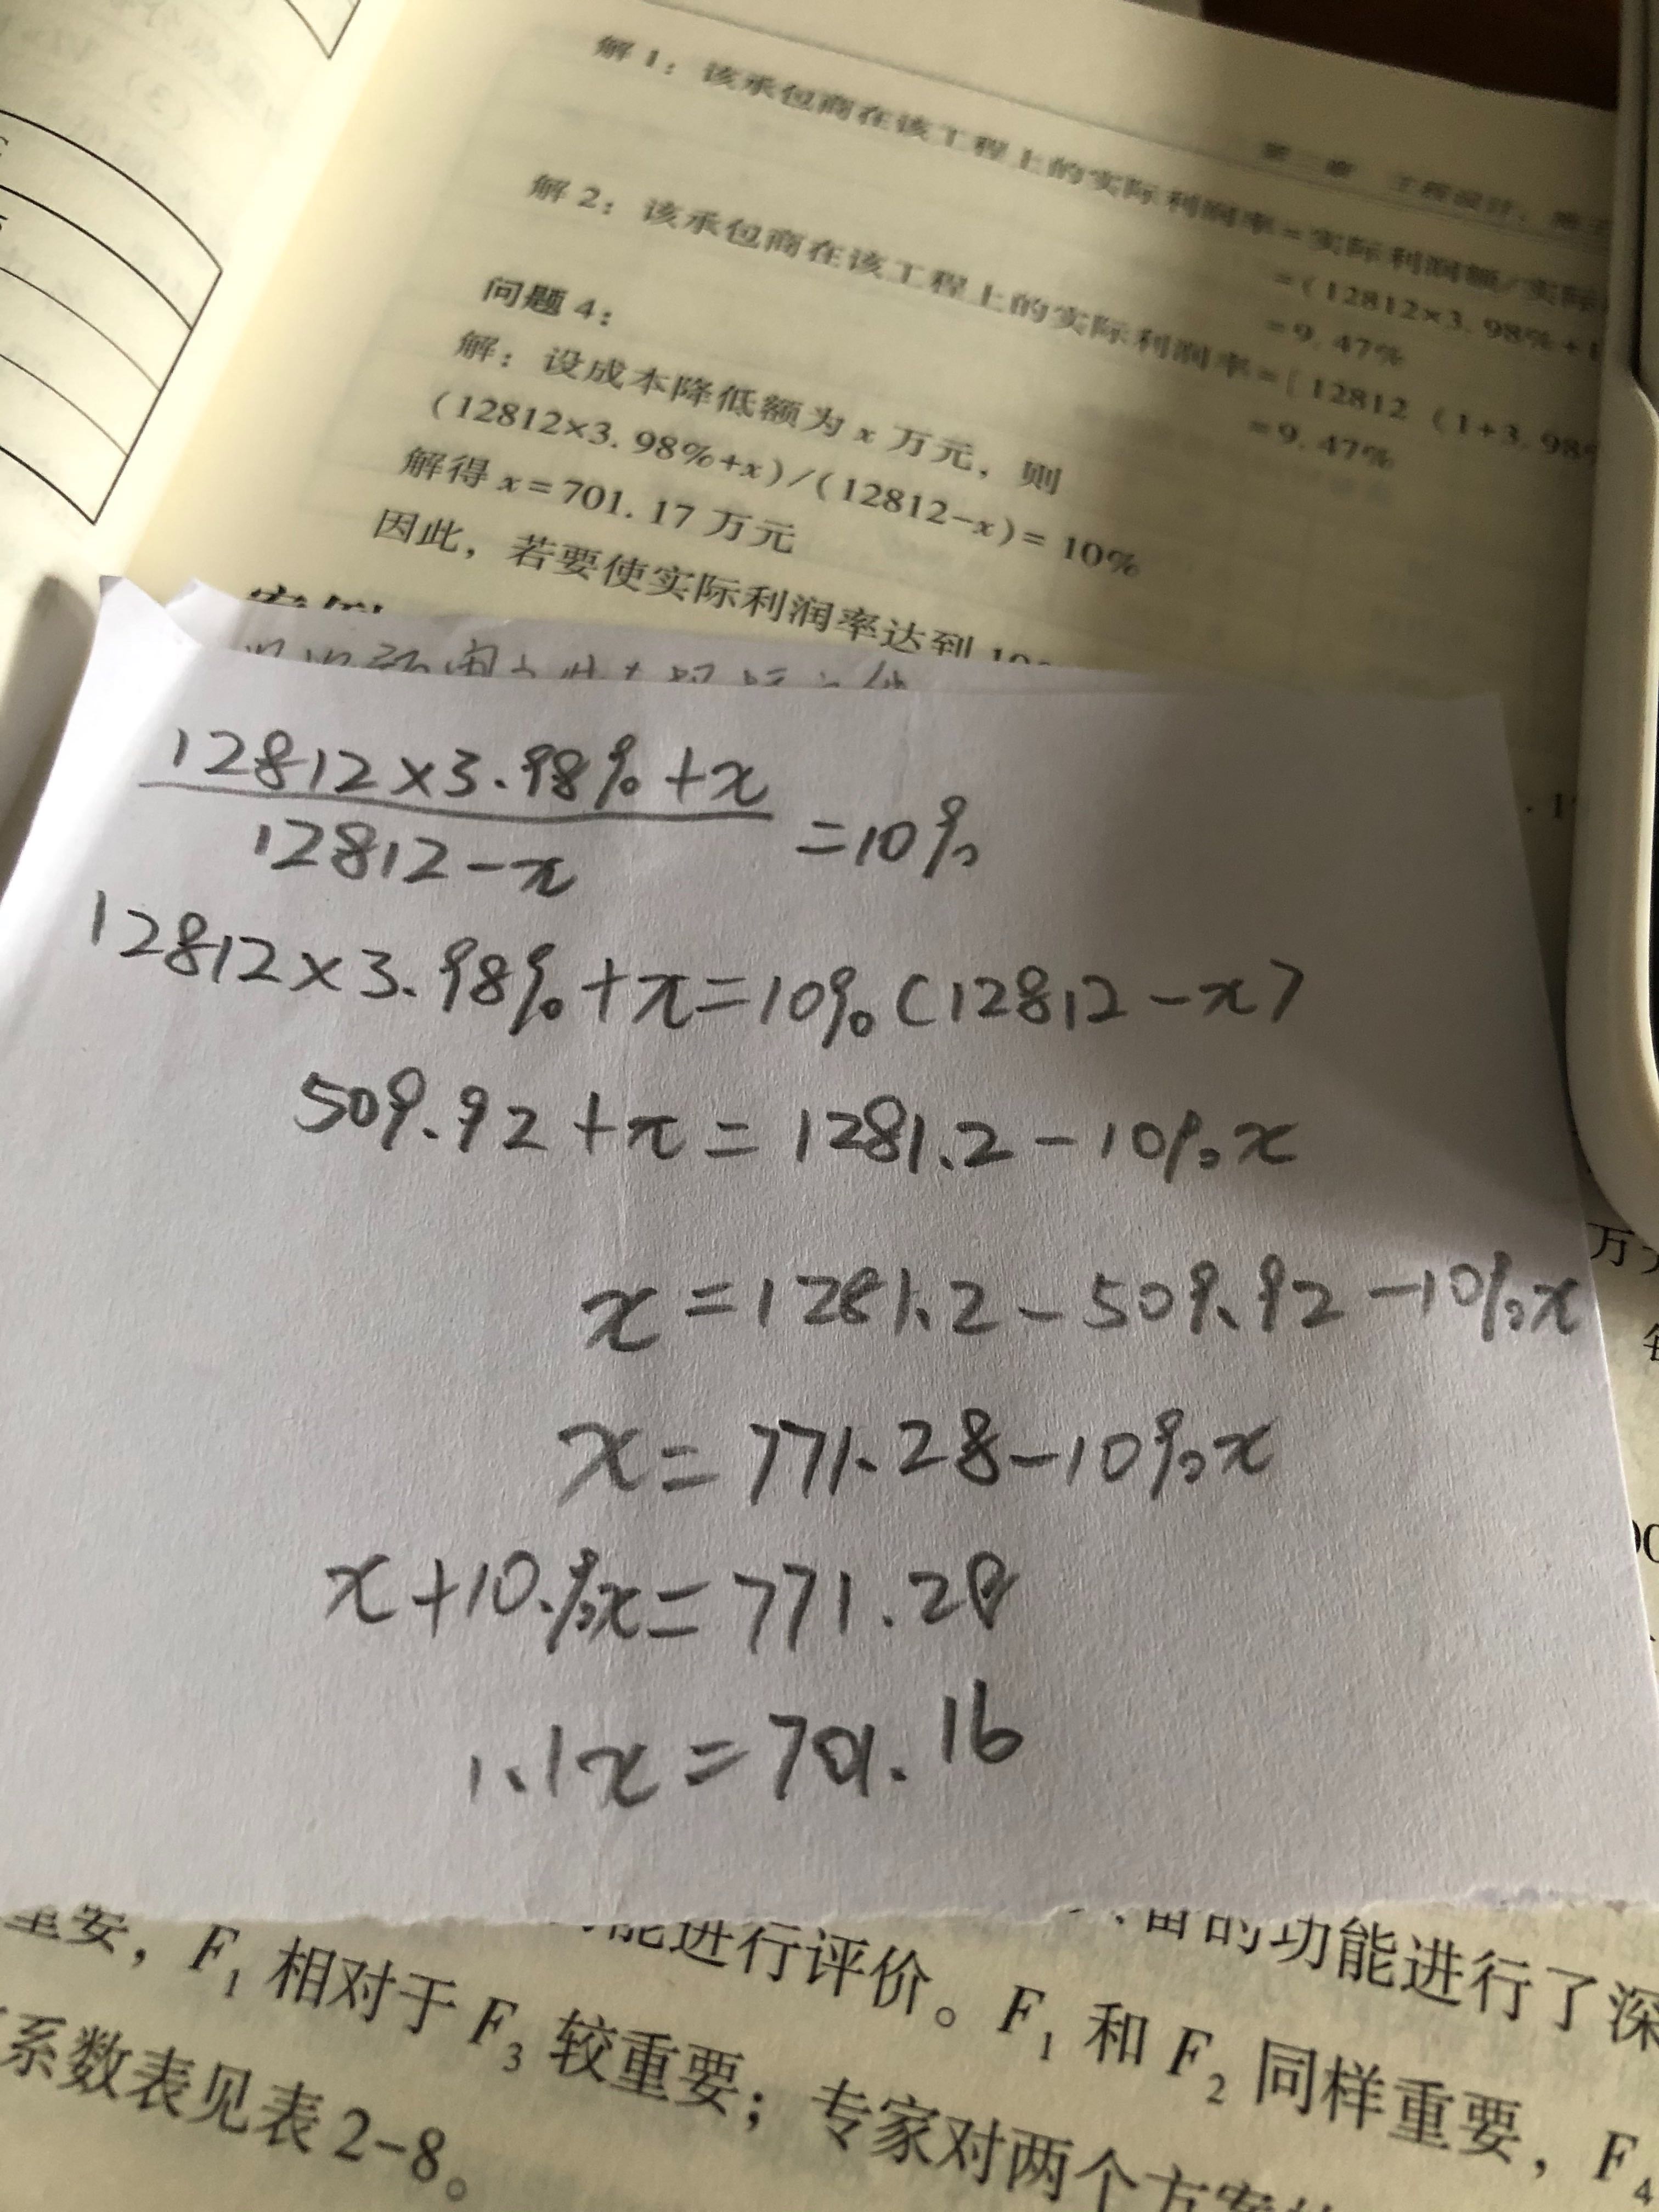 解1：该承包商在该工程上的实际利润率=实际利润额/实际
=(12812×3.98%+
=9.47%
解2：该承包商在该工程上的实际利润率=[12812（1+3.98%
=9.47%
问题4：
解：设成本降低额为x万元，则
(12812×3.98%+x)/(12812-x)=10%
解得x=701.17万元
因此，若要使实际利润率达到
12812×3.98%+x
12812-x
=10%
12812×3.98%+x=10%(12812-x)
509.92+x=1281.2-10%x
x=1281.2-509.92-10%x
x=771.28-10%x
x+10.%x=771.28
1.1x=701.16
能进行评价。F₁和F₂同样重要，F₄
的功能进行了深
重要，F₁相对于F₃较重要；专家对两个方案
系数表见表2-8。